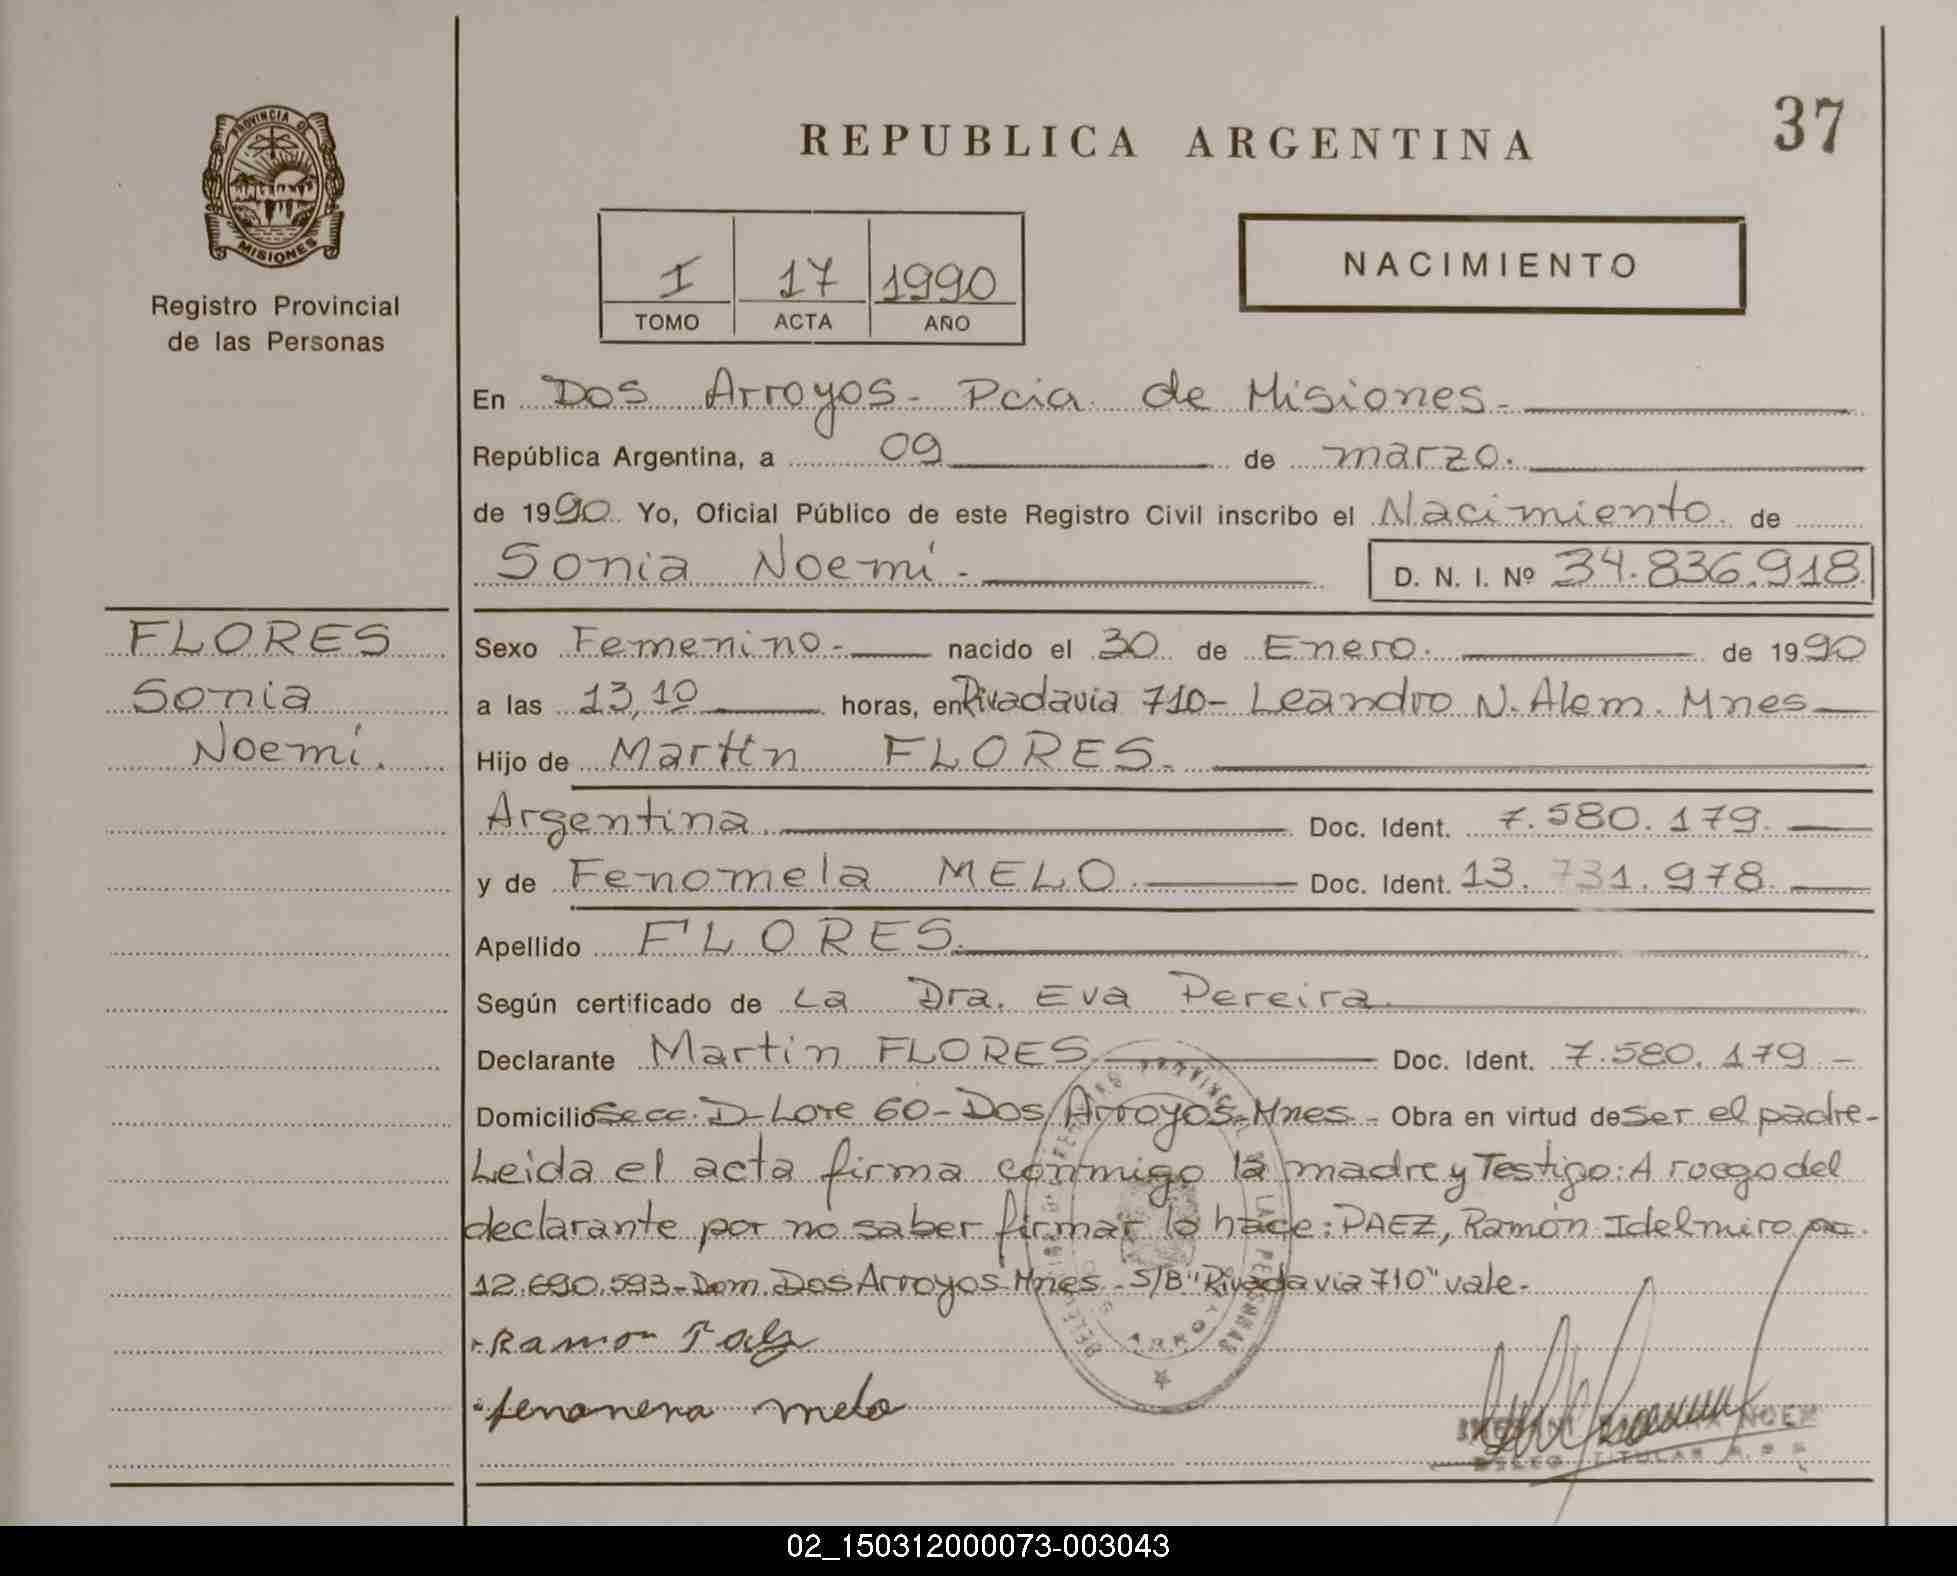 PROVINCIA DE
MISIONES
Registro Provincial
de las Personas
REPUBLICA ARGENTINA
37
I 17 1990
TOMO ACTA AÑO
NACIMIENTO
En Dos Arroyos - Pcia de Misiones -
República Argentina, a 09 de marzo.
de 1990 Yo, Oficial Público de este Registro Civil inscribo el Nacimiento de
Sonia Noemí - D. N. I. Nº 34.836.918
FLORES
Sonia
Noemí.
Sexo Femenino - nacido el 30 de Enero. de 1990
a las 13,10 horas, en Rivadavia 710 - Leandro N. Alem. Mnes
Hijo de Martín FLORES.
Argentina Doc. Ident. 7.580.179.
y de Fenomela MELO. Doc. Ident. 13.731.978.
Apellido FLORES.
Según certificado de La Dra. Eva Pereira
Declarante Martín FLORES Doc. Ident. 7.580.179 -
Domicilio Secc. D - Lote 60 - Dos Arroyos - Mnes - Obra en virtud de ser el padre -
Leida el acta firma conmigo la madre y Testigo: A ruego del
declarante por no saber firmar lo hace: PAEZ, Ramón Idelmiro
12.690.593 - Dom. Dos Arroyos Mnes - S/B "Rivadavia 710" vale -
Ramon Paez
fenonena melo
TITULAR
02_150312000073-003043